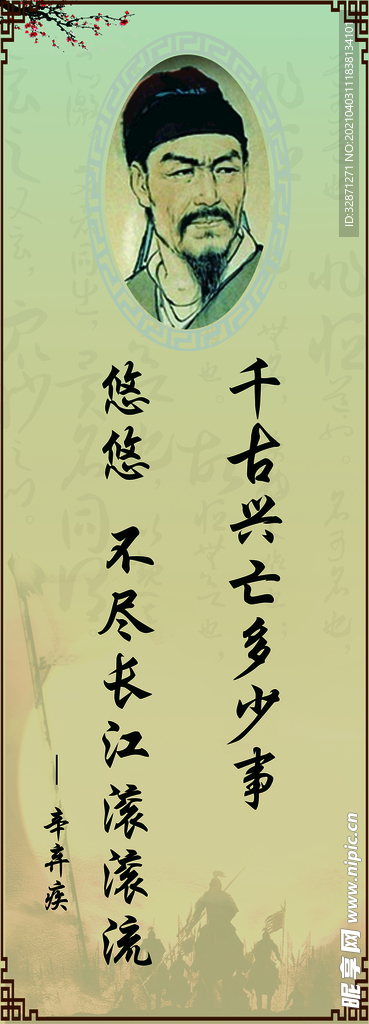 千古兴亡多少事
悠悠 不尽长江滚滚流
—辛弃疾
ID:32871271 NO:20210403111838134101
昵享网 www.nipic.cn